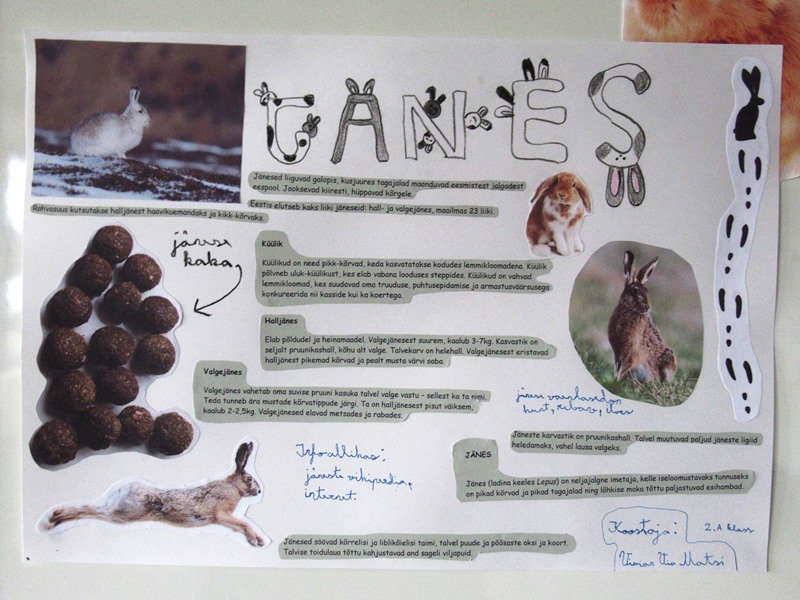 JÄNES
Jänesed liiguvad galopis, kusjuures tagajalad maanduvad eesmistest jalgadest
eespool. Jooksevad kiiresti, hüppavad kõrgele.
Eestis elutseb kaks liiki jäneseid: hall- ja valgejänes, maailmas 23 liiki.
Rahvasuus kutsutakse halljänest haavikuemandaks ja kikk-kõrvaks.
jänese
kaka
Küülik
Küülikud on need pikk-kõrvad, keda kasvatatakse kodudes lemmikloomadena. Küülik
põlvneb uluk-küülikust, kes elab vabana looduses steppides. Küülikud on vahvad
lemmikloomad, kes suudavad oma truuduse, puhtusepidamise ja armastusväärsusega
konkureerida nii kasside kui ka koertega.
Halljänes
Elab põldudel ja heinamaadel. Valgejänesest suurem, kaalub 3-7kg. Kasvastik on
seljalt pruunikashall, kõhu alt valge. Talvekarv on helehall. Valgejänesest eristavad
halljänest pikemad kõrvad ja pealt musta värvi saba.
Valgejänes
Valgejänes vahetab oma suvise pruuni kasuka talvel valge vastu - sellest ka ta nimi.
Teda tunneb ära mustade kõrvatippude järgi. Ta on halljänesest pisut väiksem,
kaalub 2-2,5kg. Valgejänesed elavad metsades ja rabades.
jänese vaenlased on
hunt, rebane, ilves
Jäneste karvastik on pruunikashall. Talvel muutuvad paljud jäneste liigid
heledamaks, vahel lausa valgeks.
JÄNES
Jänes (ladina keeles Lepus) on neljajalgne imetaja, kelle iseloomustavaks tunnuseks
on pikad kõrvad ja pikad tagajalad ning lõhkise moka tõttu paljastuvad esihambad.
Info allikas:
jäneste vikipedia,
internet.
Jänesed söövad kõrrelisi ja liblikõielisi taimi, talvel puude ja põõsaste oksi ja koort.
Talvise toidulaua tõttu kahjustavad and sageli viljapuid.
Koostaja: 2.A klass
Matsi